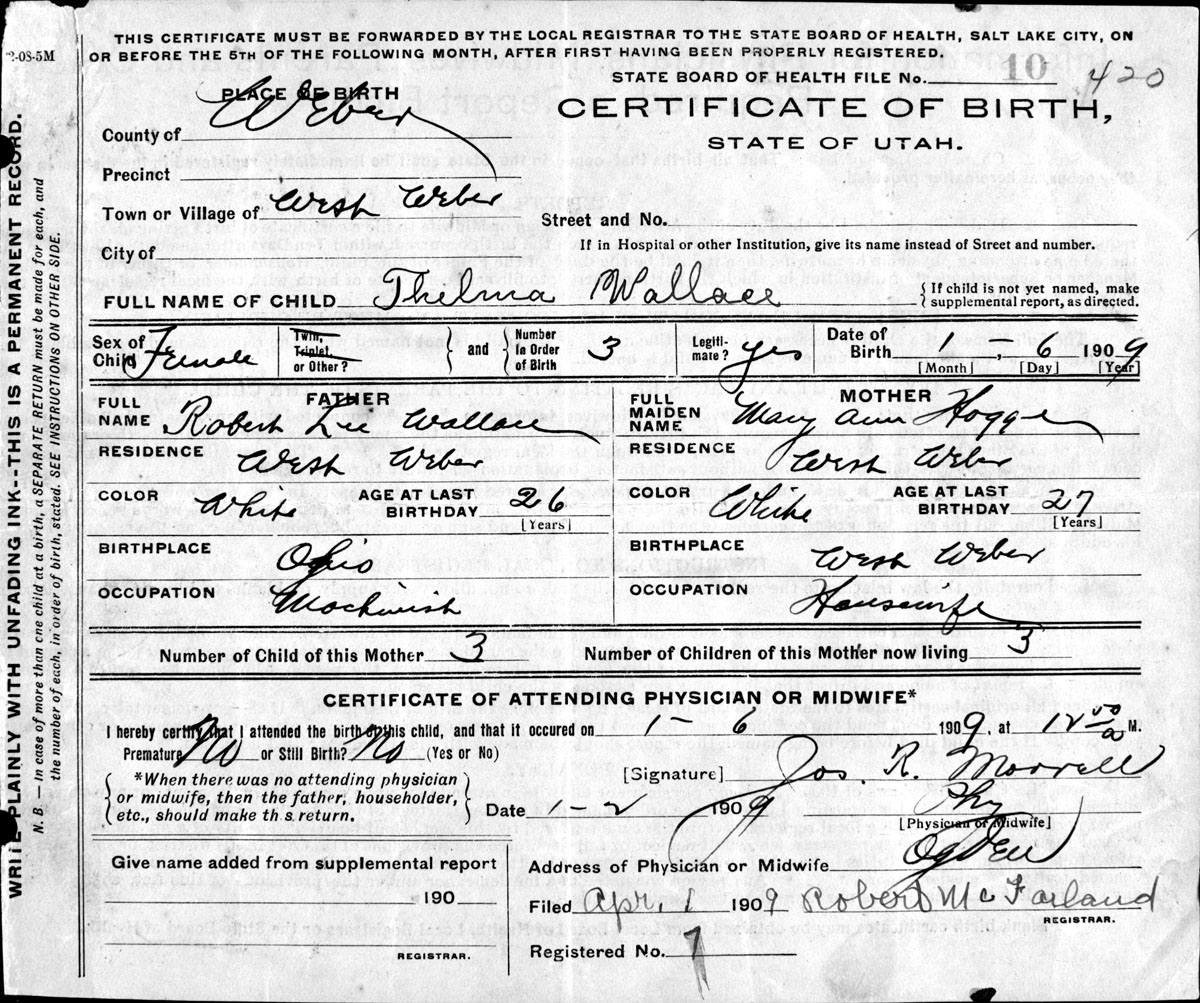 THIS CERTIFICATE MUST BE FORWARDED BY THE LOCAL REGISTRAR TO THE STATE BOARD OF HEALTH, SALT LAKE CITY, ON
OR BEFORE THE 5TH OF THE FOLLOWING MONTH, AFTER FIRST HAVING BEEN PROPERLY REGISTERED.
2-08-5M
STATE BOARD OF HEALTH FILE No. 10 420
PLACE OF BIRTH
CERTIFICATE OF BIRTH,
STATE OF UTAH.
County of Weber
Precinct
Town or Village of West Weber
Street and No.
If in Hospital or other Institution, give its name instead of Street and number.
City of
FULL NAME OF CHILD Thelma Wallace
{ If child is not yet named, make
supplemental report, as directed.
Sex of Child Female
Twin, Triplet, or Other?
} and {
Number in Order of Birth 3
Legitimate? yes
Date of Birth 1, 6 1909
[Month] [Day] [Year]
FATHER
FULL NAME Robert Lee Wallace
RESIDENCE West Weber
COLOR White AGE AT LAST BIRTHDAY 26
[Years]
BIRTHPLACE Ohio
OCCUPATION Machinist
MOTHER
FULL MAIDEN NAME Mary Ann Hogge
RESIDENCE West Weber
COLOR White AGE AT LAST BIRTHDAY 27
[Years]
BIRTHPLACE West Weber
OCCUPATION Housewife
Number of Child of this Mother 3 Number of Children of this Mother now living 3
CERTIFICATE OF ATTENDING PHYSICIAN OR MIDWIFE*
I hereby certify that I attended the birth of this child, and that it occured on 1 - 6 1909, at 12 00 M.
Premature No or Still Birth? No (Yes or No)
*When there was no attending physician
or midwife, then the father, householder,
etc., should make this return.
[Signature] Jos. R. Morrell
Date 1-2 1909 Phy
[Physician or Midwife]
Address of Physician or Midwife Ogden
Give name added from supplemental report
190
REGISTRAR.
Filed Apr. 1 1909 Robert McFarland
REGISTRAR.
Registered No. 7
WRITE PLAINLY WITH UNFADING INK—THIS IS A PERMANENT RECORD.
N. B.—In case of more than one child at a birth, a SEPARATE RETURN must be made for each, and
the number of each, in order of birth, stated. SEE INSTRUCTIONS ON OTHER SIDE.